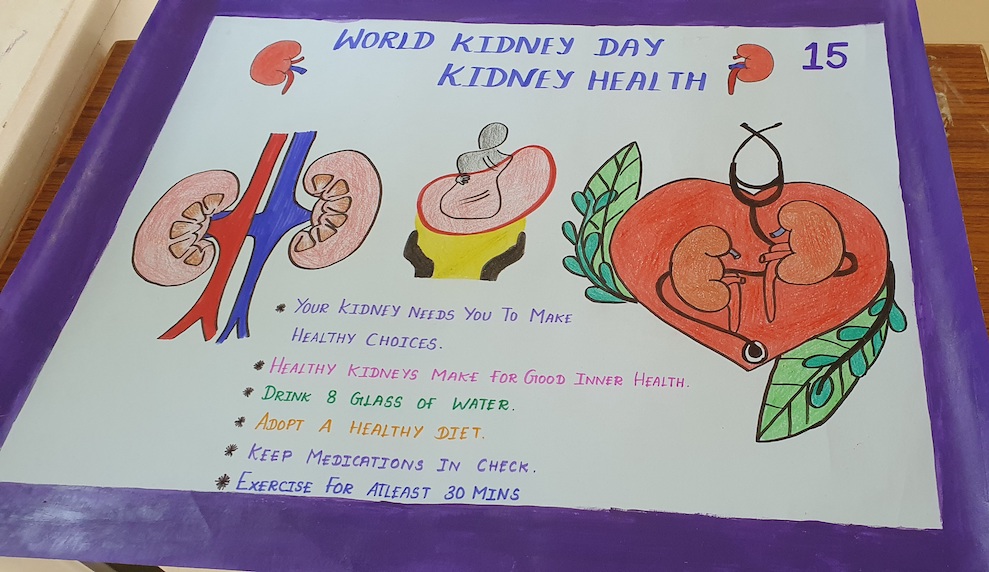 WORLD KIDNEY DAY
KIDNEY HEALTH
15
* YOUR KIDNEY NEEDS YOU TO MAKE
HEALTHY CHOICES.
* HEALTHY KIDNEYS MAKE FOR GOOD INNER HEALTH.
* DRINK 8 GLASS OF WATER.
* ADOPT A HEALTHY DIET.
* KEEP MEDICATIONS IN CHECK.
* EXERCISE FOR ATLEAST 30 MINS